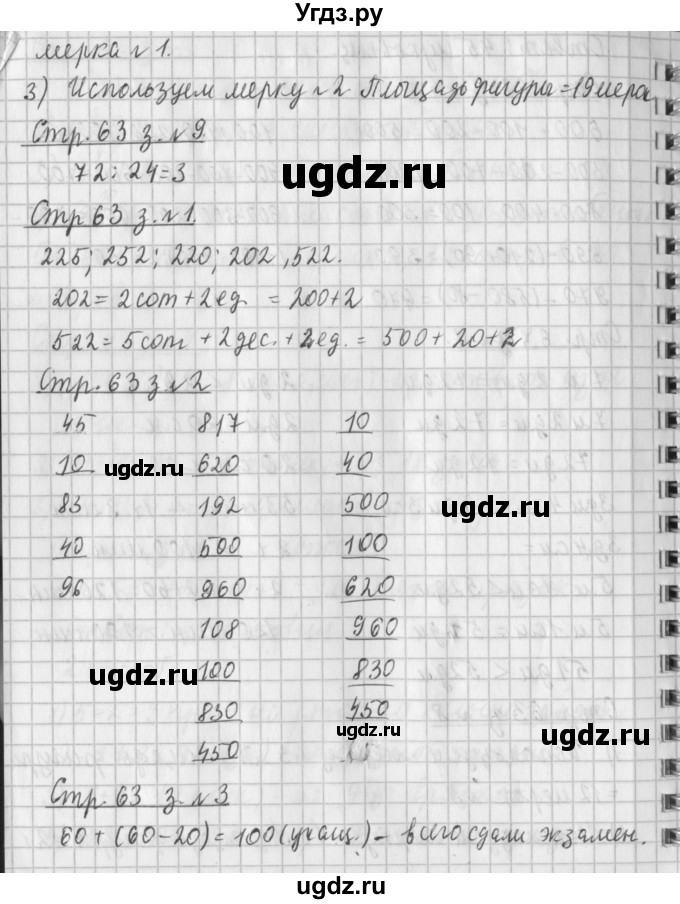 Угдз.ру
мерка №1.
3) Используем мерку №2 Площадь фигуры = 19 мерок
Стр. 63 з. №9
72 : 24 = 3
ugdz.ru
Стр 63 з. №1.
225; 252; 220; 202, 522.
202 = 2 сот + 2 ед. = 200 + 2
522 = 5 сот + 2 дес. + 2 ед. = 500 + 20 + 2
Стр. 63 з №2
45 817 10
10 620 40
ugdz.ru
83 192 500
ugdz.ru
40 500 100
96 960 620
108 960
100 830
ugdz.ru
830 450
ugdz.ru
ugdz.ru
450
Стр. 63 з. №3
60 + (60 - 20) = 100 (учащ.) - всего сдали экзамен.
ugdz.ru